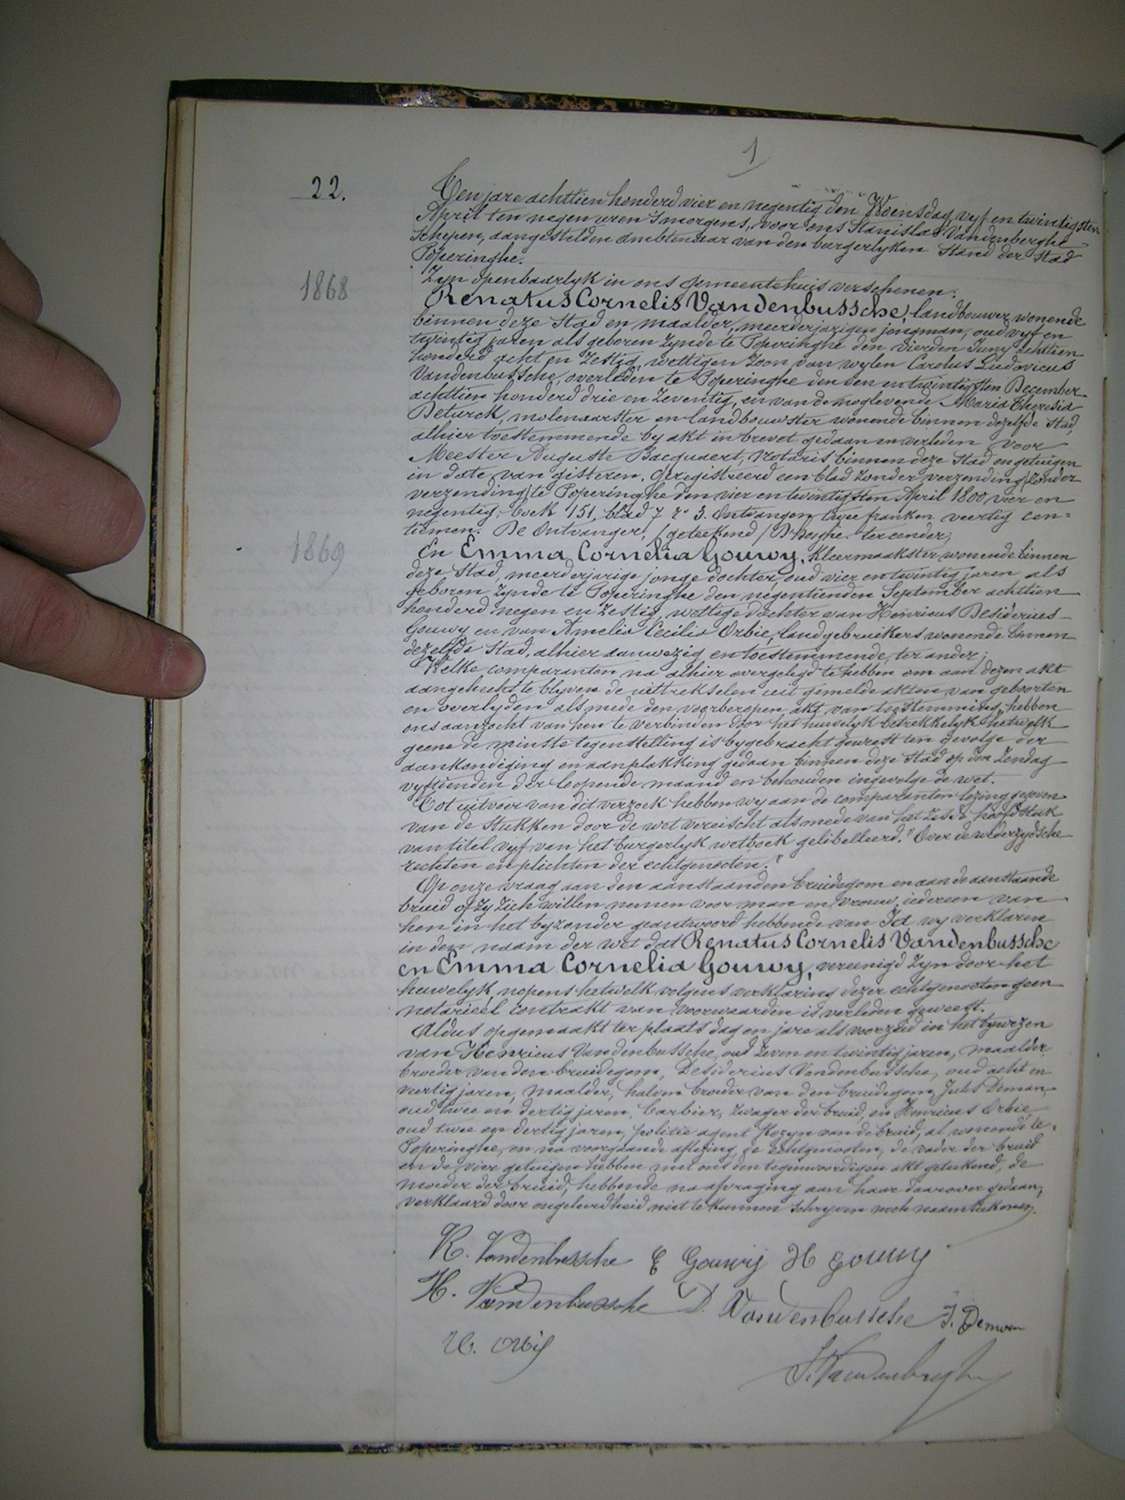 1
22.
Ten jare achttien honderd vier en negentig den Woensdag vyf en twintigsten
April ten negen uren 's morgens, voor ons Stanislas Vandenberghe
Schepen, aangestelden ambtenaar van den burgerlyken Stand der Stad
Poperinghe.
Zyn openbaarlyk in ons gemeentehuis verschenen:
1868
Renatus Cornelis Vandenbussche, landbouwer wonende
binnen deze Stad en maalder, meerderjarigen jongman, oud vyf en
twintig jaren als geboren zynde te Poperinghe den vierden Juny achttien
honderd acht en zestig, wettigen zoon van wylen Carolus Ludovicus
Vandenbussche, overleden te Poperinghe den een en twintigsten December
achttien honderd drie en zeventig, en van de noglevende Maria Theresia
Deturck, molenaarster en landbouwster wonende binnen dezelfde Stad,
alhier toestemmende by akt in brevet gedaan en verleden voor
Meester Auguste Bacquaert, Notaris binnen deze Stad en getuigen
in date van gisteren. Geregistreerd een blad zonder verzending zonder
verzending te Poperinghe den vier en twintigsten April 1800 vier en
negentig, boek 151, blad 7 v° 3. Ontvangen twee franken veertig cen=
tiemen. De Ontvanger, (geteekend) ter eender;
1869
En Emma Cornelia Gouwy, Kleermaakster, wonende binnen
deze Stad, meerderjarige jonge dochter, oud vier en twintig jaren als
geboren zynde te Poperinghe den negentienden September achttien
honderd negen en zestig, wettige dochter van Henricus Desiderius
Gouwy en van Amelia Cecilia Orbie, landgebruikers wonende binnen
dezelfde Stad, alhier aanwezig en toestemmende, ter ander;
Welke comparanten na alhier overgelegd te hebben om aan dezen akt
aangehecht te blyven de uittrekselen uit gemelde akten van geboorten
en overlyden als mede den voorberoepen akt van toestemming, hebben
ons aanzocht van hen te verbinden door het huwelyk betrekkelyk hetwelk
geene de minste tegenstelling is bygebracht geweest ten gevolge der
aankondiging en aanplakking gedaan binnen deze Stad op den Zondag
vyftienden der loopende maand en behouden ingevolge de wet.
Tot uitvoer van dit verzoek hebben wy aan de comparanten lezing gegeven
van de stukken door de wet vereischt alsmede van het zesde hoofdstuk
van titel vyf van het burgerlyk wetboek gelibelleerd: "Over de wederzydsche
rechten en plichten der echtgenooten."
Op onze vraag aan den aanstaanden bruidegom en aan de aanstaande
bruid of zy zich willen nemen voor man en vrouw, iedereen van
hen in het byzonder geantwoord hebbende van Ja, wy verklaren
in den naam der wet dat Renatus Cornelis Vandenbussche
en Emma Cornelia Gouwy, vereenigd zyn door het
huwelyk nopens hetwelk volgens verklaring dezer echtgenooten geen
notarieel contrakt van voorwaarden is verleden geweest.
Aldus opgemaakt ter plaats dag en jare als voorzeid in het bywezen
van Henricus Vandenbussche, oud zeven en twintig jaren, maalder
broeder van den bruidegom, Desiderius Vandenbussche, oud acht en
veertig jaren, maalder, halven broeder van den bruidegom, Jules Deman,
oud twee en dertig jaren, barbier, zwager der bruid, en Henricus Orbie,
oud twee en dertig jaren, politie agent, Kozyn van de bruid, al wonende te
Poperinghe, en na voorgaande aflezing, de echtgenooten, de vader der bruid
en de vier getuigen hebben met ons den tegenwoordigen akt geteekend, de
moeder der bruid, hebbende na afvraging aan haar daarover gedaan,
verklaard door ongeleerdheid niet te kunnen schryven noch naamteekenen.
R. Vandenbussche E Gouwy H Gouwy
H. Vandenbussche D. Vandenbussche J. Deman
H. Orbie
S. Vandenberghe